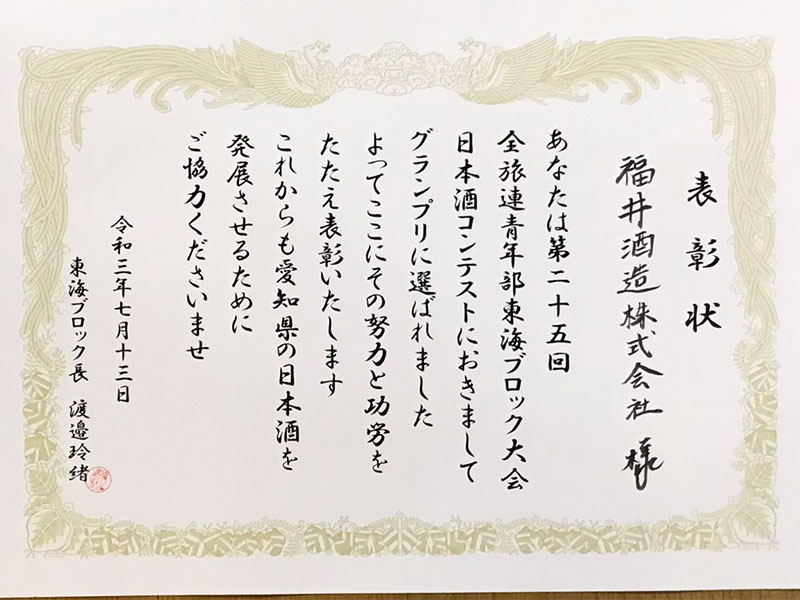 表彰状
福井酒造株式会社 様
あなたは第二十五回
全旅連青年部東海ブロック大会
日本酒コンテストにおきまして
グランプリに選ばれました
よってここにその努力と功労を
たたえ表彰いたします
これからも愛知県の日本酒を
発展させるために
ご協力くださいませ
令和三年七月十三日
東海ブロック長 渡邉玲緒